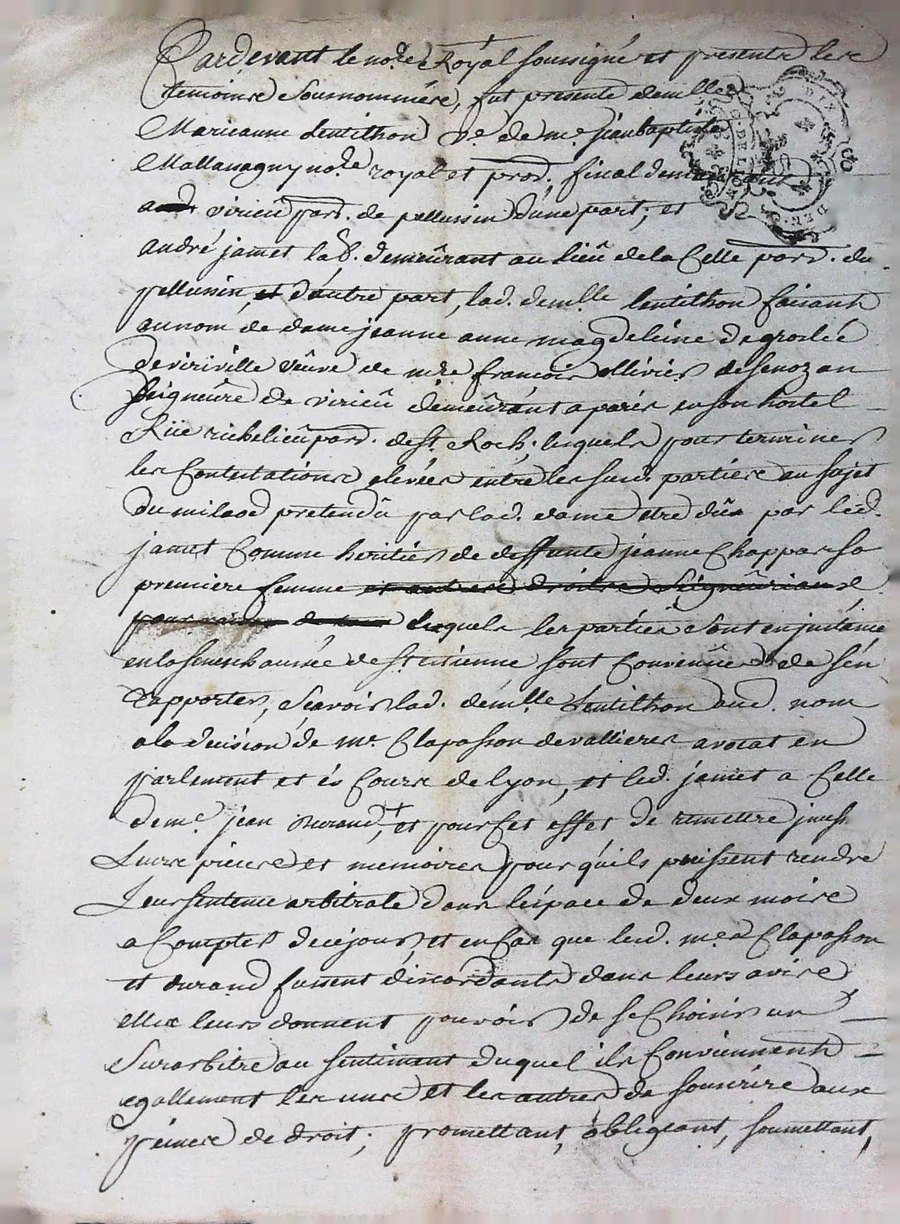 Pardevant le no.re Royal soussigné et presents les
temoins sousnommés, fut presente demlle
Marieanne Lentilhon v.e de m.e jeanbaptiste
Mallavagny no.re royal et prod. fiscal
and virieu parr. de pellussin d'une part, et
andré jamet lab.r demeurant au lieu de la Celle parr. du
pellussin, et d'autre part, lad. demlle lentilhon faisant
au nom de dame jeanne anne magdeleine de groslée
de viriville veuve de m.re francois ollivier de senozan
seigneur de virieu demeurant a paris en son hostel
Rue richelieu parr. de st. Roch; lesquels pour terminer
les Contestations elevées entre les susd. parties au sujet
du milaod pretendu par lad. dame etre du par led.
jamet Comme heritier de deffunte jeanne Chappar sa
premiere femme et autres droits seigneuriaux
pour de tout lesquels les parties sont en instance
en la senechaussée de st etienne sont convenus de s'en
rapporter, scavoir lad. demlle Lentilhon aud. nom
a la decision de m.e Clapasson de vallieres avocat en
parlement et és Cours de lyon, et led. jamet a Celle
de m.e jean Durand, et pour cet effet de remettre
Leurs pieces et memoires pour qu'ils puissent rendre
Leur sentence arbitrale dans l'espace de deux mois
a Compter de ce jour, et en cas que lesd. m.es Clapasson
et durand fussent discordants dans leurs avis
elles leurs donnent pouvoir de se Choisir un
Surarbitre au sentiment duquel ils Conviennent
egallement les uns et les autres de souscrire aux
peines de droit; promettant, obligeant, soumettant,